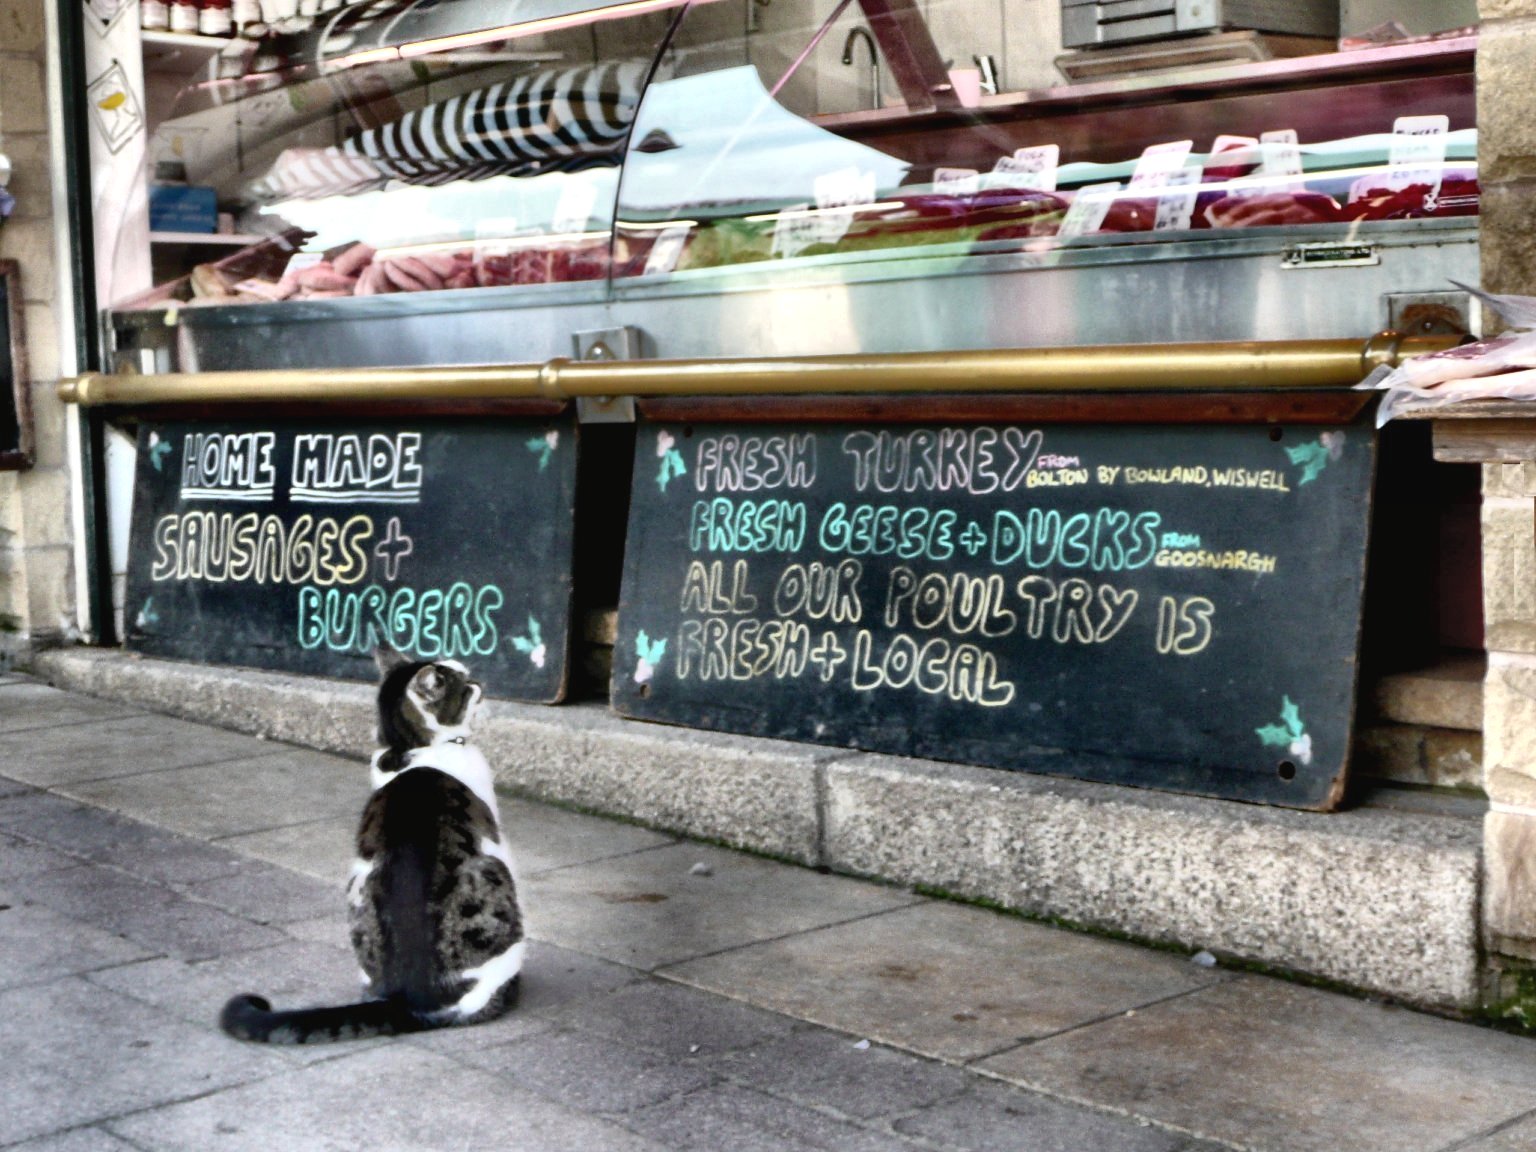 HOME MADE
SAUSAGES +
BURGERS
FRESH TURKEY FROM
BOLTON BY BOWLAND, WISWELL
FRESH GEESE + DUCKS FROM
GOOSNARGH
ALL OUR POULTRY IS
FRESH + LOCAL